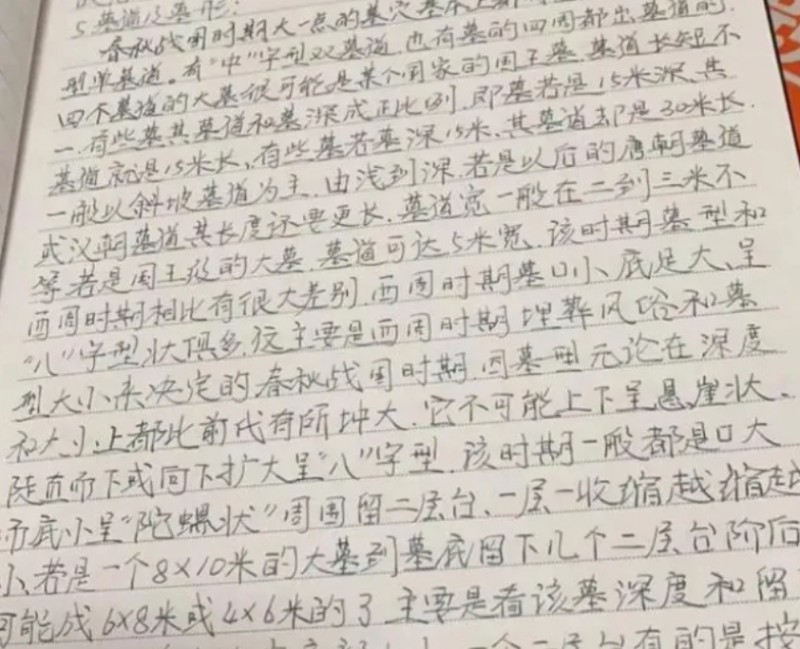 5.墓道及墓形:
春秋战国时期大一点的墓穴基本上都
型单墓道。有“中”字型双墓道,也有墓的四周都出墓道的.
四个墓道的大墓很可能是某个国家的国王墓.墓道长短不
一.有些墓其墓道和墓深成正比例.即墓若是15米深、其
墓道就是15米长,有些墓若墓深15米、其墓道却是30米长.
一般以斜坡墓道为主.由浅到深.若是以后的唐朝墓道
或汉朝墓道其长度还要更长.墓道宽一般在二到三米不
等若是国王级的大墓.墓道可达5米宽.该时期墓型和
西周时期相比有很大差别.西周时期墓口小、底足大、呈
“八”字型状俱多.这主要是西周时期埋葬风俗和墓
型大小来决定的春秋战国时期.因墓型无论在深度
和大小上都比前代有所坤大.它不可能上下呈悬崖状、
陡直而下或向下扩大呈“八”字型.该时期一般都是口大
而底小呈“陀螺状”周围留二层台、一层一收缩越缩越
小.若是一个8×10米的大墓到墓底留下几个二层台阶后
可能成6×8米或4×6米的了主要是看该墓深度和留
一个二层台有的是按